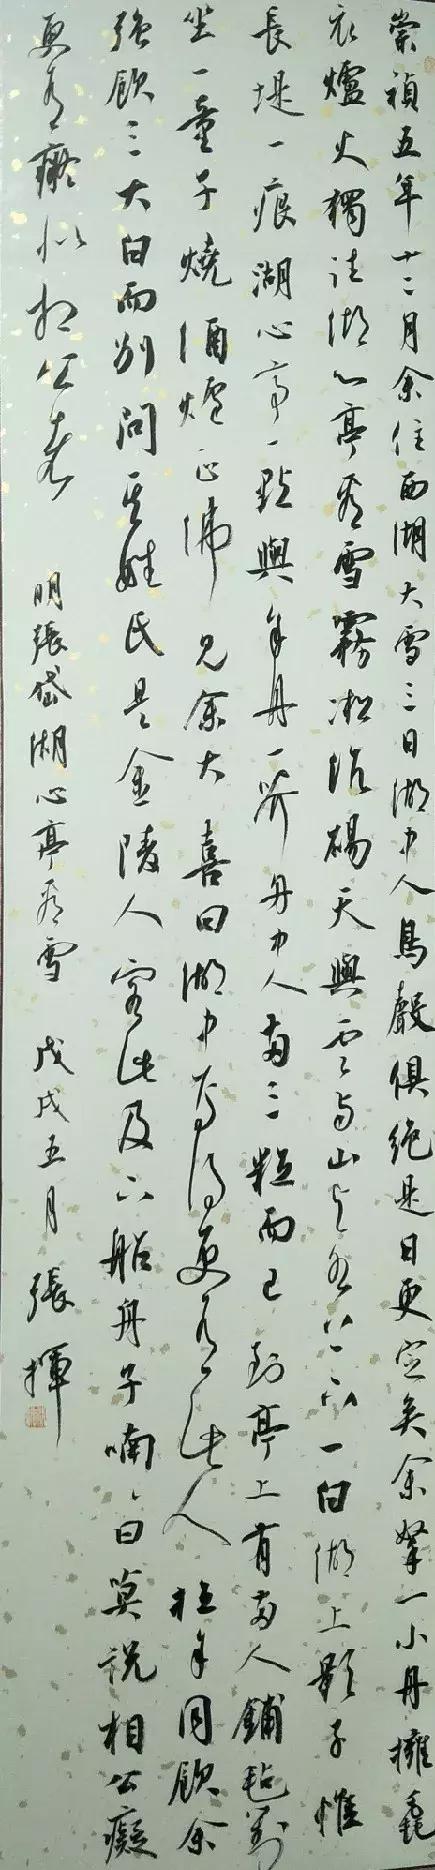 崇禎五年十二月余住西湖大雪三日湖中人鳥聲俱絶是日更定矣余拏一小舟擁毳
衣爐火獨往湖心亭看雪霧凇沆碭天與雲與山與水上下一白湖上影子惟
長堤一痕湖心亭一點與余舟一芥舟中人兩三粒而已到亭上有兩人鋪氈對
坐一童子燒酒爐正沸見余大喜曰湖中焉得更有此人拉余同飲余
強飲三大白而別問其姓氏是金陵人客此及下船舟子喃々曰莫説相公癡
更有癡似相公者
明張岱湖心亭看雪 戊戌五月 張揮